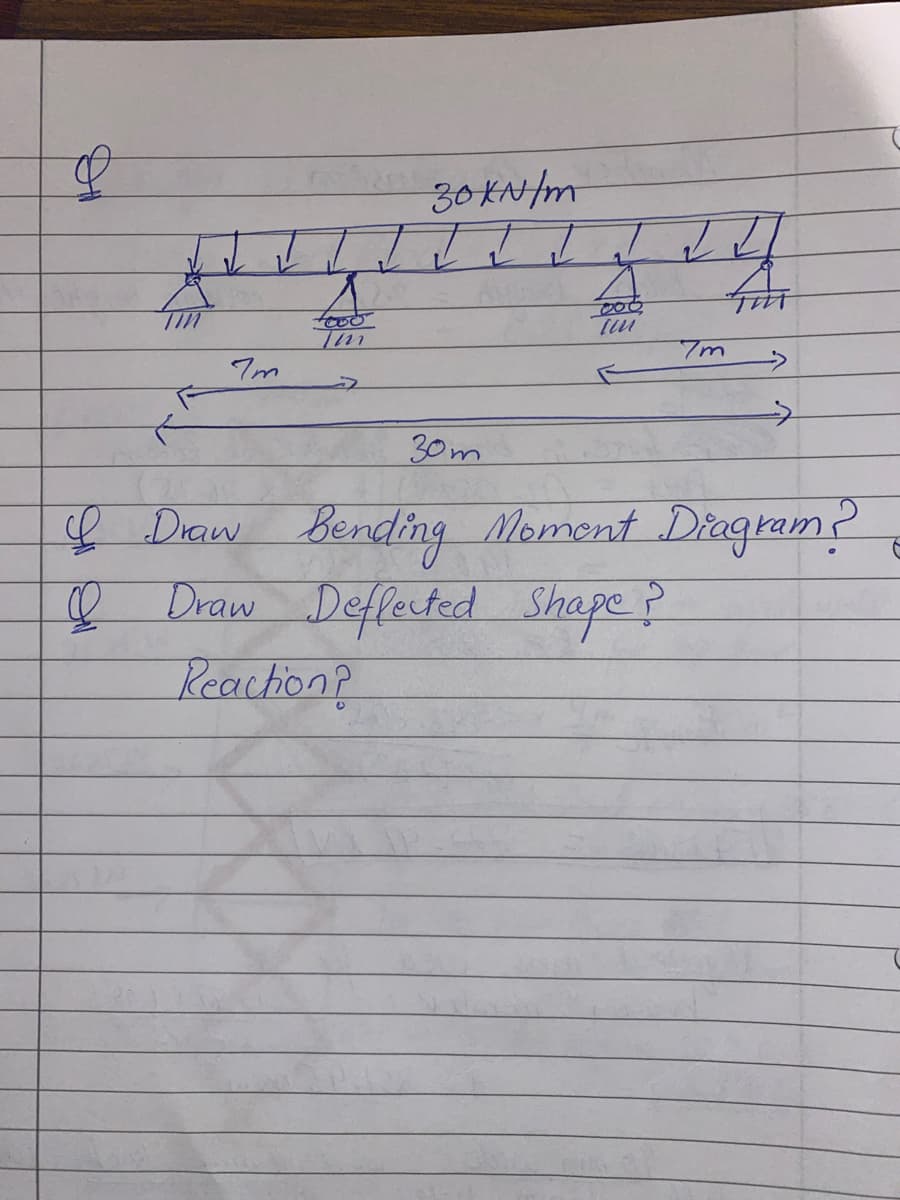 Q
30 KN/m
7m
7m
30m
Q Draw Bending Moment Diagram?
Q Draw Deflected Shape?
Reaction?